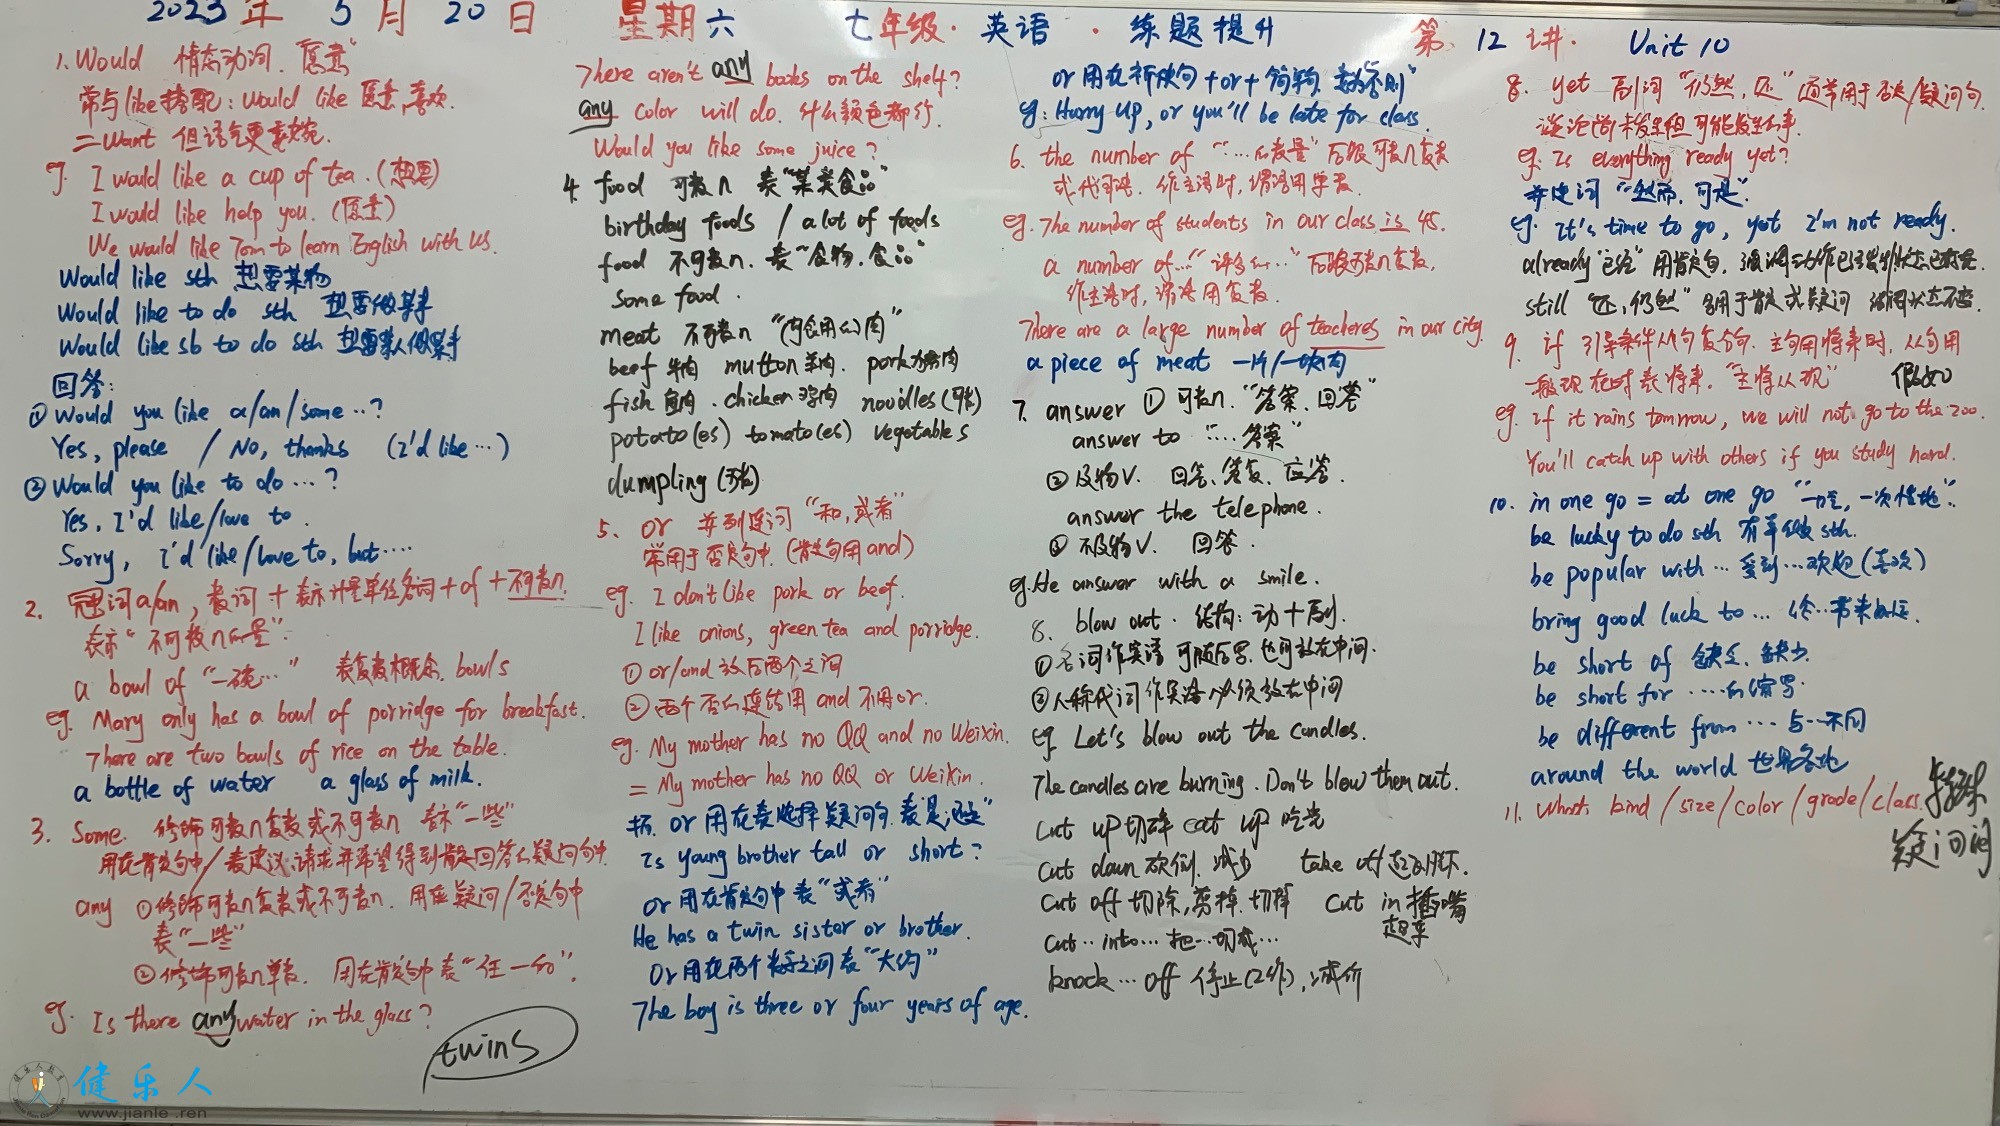 2023年 5月 20日 星期六 七年级·英语·练题提升 第12讲. Unit 10
1. Would 情态动词. "愿意"
常与like搭配: Would like 愿意,喜欢.
=Want 但语气更委婉.
eg. I would like a cup of tea. (想要)
I would like help you. (愿意)
We would like Tom to learn English with us.
Would like sth 想要某物
Would like to do sth 想要做某事
Would like sb to do sth 想要某人做某事
回答:
① Would you like a/an/some ..?
Yes, please / No, thanks (I'd like ...)
② Would you like to do ...?
Yes, I'd like/love to.
Sorry, I'd like/love to, but....
2. 冠词a/an, 数词 + 表示计量单位名词 + of + 不可数n.
表示"不可数n的量".
a bowl of "一碗..." 表复数概念. bowls
eg. Mary only has a bowl of porridge for breakfast.
There are two bowls of rice on the table.
a bottle of water a glass of milk.
3. Some. 修饰可数n复数或不可数n 表示"一些"
用在肯定句中/表建议,请求并希望得到肯定回答的疑问句中.
any ①修饰可数n复数或不可数n. 用在疑问/否定句中
表"一些"
②修饰可数n单数. 用在肯定句中表"任一的".
eg. Is there any water in the glass?
twins
There aren't any books on the shelf?
any color will do. 什么颜色都行.
Would you like some juice?
4. food 可数n 表"某类食品"
birthday foods / a lot of foods
food 不可数n. 表"食物,食品"
some food.
meat 不可数n "(可食用的肉)"
beef 牛肉 mutton 羊肉. pork 猪肉
fish 鱼肉. chicken 鸡肉 noodles (可数)
potato(es) tomato(es) vegetables
dumpling (可数)
5. or 并列连词 "和,或者"
常用于否定句中. (肯定句用 and)
eg. I don't like pork or beef.
I like onions, green tea and porridge.
① or/and 放后两个之间
② 两个否的连结用 and 不用or.
eg. My mother has no QQ and no Weixin.
= My mother has no QQ or WeiXin.
拓. or 用在表选择疑问句. 表"是..还是"
Is young brother tall or short?
or 用在肯定句中 表"或者"
He has a twin sister or brother.
or 用在两个数字之间表"大约"
The boy is three or four years of age.
or 用在祈使句 + or + 简单句. 表"否则"
eg: Hurry up, or you'll be late for class.
6. the number of "...的数量" 后跟可数n复数
或代词. 作主语时, 谓语用单数.
eg. The number of students in our class is 45.
a number of..." 许多的..." 后跟可数n复数,
作主语时, 谓语用复数.
There are a large number of teacheres in our city.
a piece of meat 一片/一块肉
7. answer ① 可数n. "答案.回答"
answer to "....答案"
②及物V. 回答、答复、应答.
answer the telephone.
③ 不及物V. 回答.
eg. He answer with a smile.
8. blow out. 结构: 动+副.
①名词作宾语 可随后, 也可放在中间.
②人称代词作宾语必须放在中间
eg Let's blow out the candles.
The candles are burning. Don't blow them out.
Cut up 切碎 eat up 吃光
Cut down 砍倒. 减少 take off 起飞
Cut off 切除,剪掉. 切掉 Cut in 插嘴
超车
Cut.. into... 把...切成...
knock ... off 停止(工作), 减价
8. yet 副词 "仍然,还" 通常用于否定/疑问句.
谈论尚未发生但可能发生的事.
eg. Is everything ready yet?
并连词 "然而,可是".
eg. It's time to go, yet I'm not ready.
already "已经" 用肯定句. 强调动作已经发生状态.
still "还,仍然" 多用于肯定或疑问 强调状态不变.
9. if 引导条件从句复合句. 主句用将来时, 从句用
一般现在时表将来. "主将从现" 假如
eg. If it rains tomrrow, we will not go to the zoo.
You'll catch up with others if you study hard.
10. in one go = at one go "一口气, 一次性地".
be lucky to do sth 有幸做 sth.
be popular with ... 受到...欢迎(喜欢)
bring good luck to ... 给...带来好运.
be short of 缺乏、缺少.
be short for ....的缩写.
be different from ... 与...不同
around the world 世界各地
11. What kind / size / color / grade / class. 特殊
疑问词
健乐人
www.jianle.ren